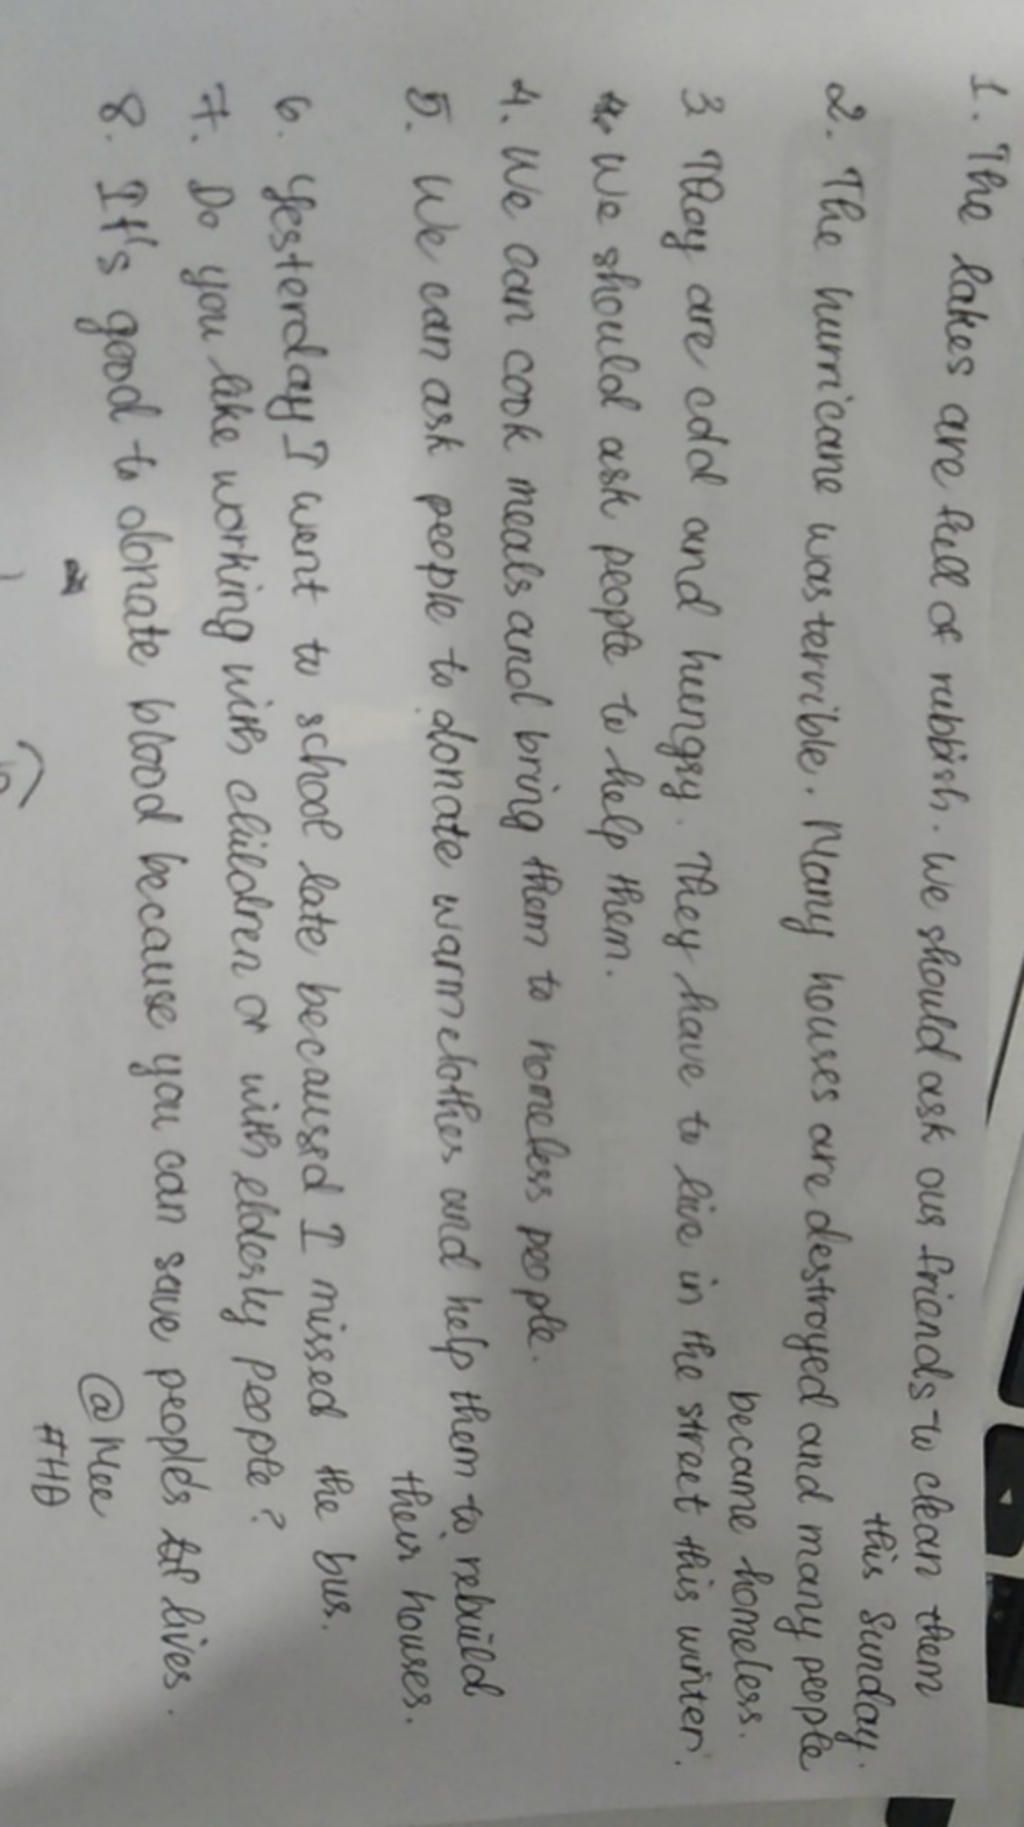 1. The lakes are full of rubbish. We should ask our friends to clean them
this Sunday.
2. The hurricane was terrible. Many houses are destroyed and many people
became homeless.
3 They are cold and hungry. They have to live in the street this winter.
We should ask people to help them.
4. We can cook meals and bring them to homeless people.
5. We can ask people to donate warm clothes and help them to rebuild
their houses.
6. Yesterday I went to school late because I missed the bus.
7. Do you like working with children or with elderly people?
8. It's good to donate blood because you can save people's lives.
@Mee
#HĐ